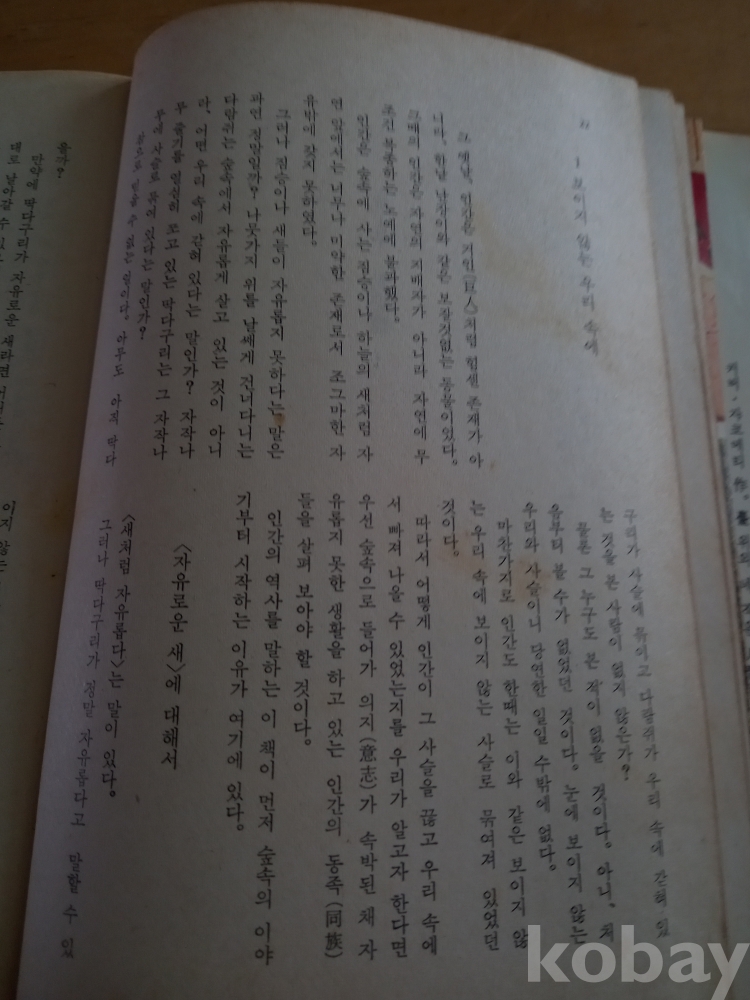 1 보이지 않는 우리 속에
그 옛날, 인간은 거인(巨人)처럼 힘센 존재가 아
니라, 한낱 난장이와 같은 보잘것없는 동물이었다.
그때의 인간은 자연의 지배자가 아니라 자연에 무
조건 복종하는 노예에 불과했다.
인간은 숲속에 사는 짐승이나 하늘의 새처럼 자
연 앞에서는 너무나 미약한 존재로서 조그마한 자
유밖에 갖지 못하였다.
그러나 짐승이나 새들이 자유롭지 못하다는 말은
과연 정말일까? 나뭇가지 위를 날쌔게 건너다니는
다람쥐는 숲속에서 자유롭게 살고 있는 것이 아니
라, 어떤 우리 속에 갇혀 있다는 말인가? 자작나
무 줄기를 열심히 쪼고 있는 딱다구리는 그 자작나
무에 사슬로 묶여 있다는 말인가?
참으로 믿을 수 없는 말이다. 아무도 아직 딱다
구리가 사슬에 묶이고 다람쥐가 우리 속에 갇혀 있
는 것을 본 사람이 없지 않은가?
물론 그 누구도 본 적이 없을 것이다. 아니, 처
음부터 볼 수가 없었던 것이다. 눈에 보이지 않는
우리와 사슬이니 당연한 일일 수밖에 없다.
마찬가지로 인간도 한때는 이와 같은 보이지 않
는 우리 속에 보이지 않는 사슬로 묶여져 있었던
것이다.
따라서 어떻게 인간이 그 사슬을 끊고 우리 속에
서 빠져 나올 수 있었는지를 우리가 알고자 한다면
우선 숲속으로 들어가 의지(意志)가 속박된 채 자
유롭지 못한 생활을 하고 있는 인간의 동족(同族)
들을 살펴 보아야 할 것이다.
인간의 역사를 말하는 이 책이 먼저 숲속의 이야
기부터 시작하는 이유가 여기에 있다.
〈자유로운 새〉에 대해서
〈새처럼 자유롭다〉는 말이 있다.
그러나 딱다구리가 정말 자유롭다고 말할 수 있
을까?
만약에 딱다구리가 자유로운 새라면
대로 날아갈 수
이지 않는
kobay